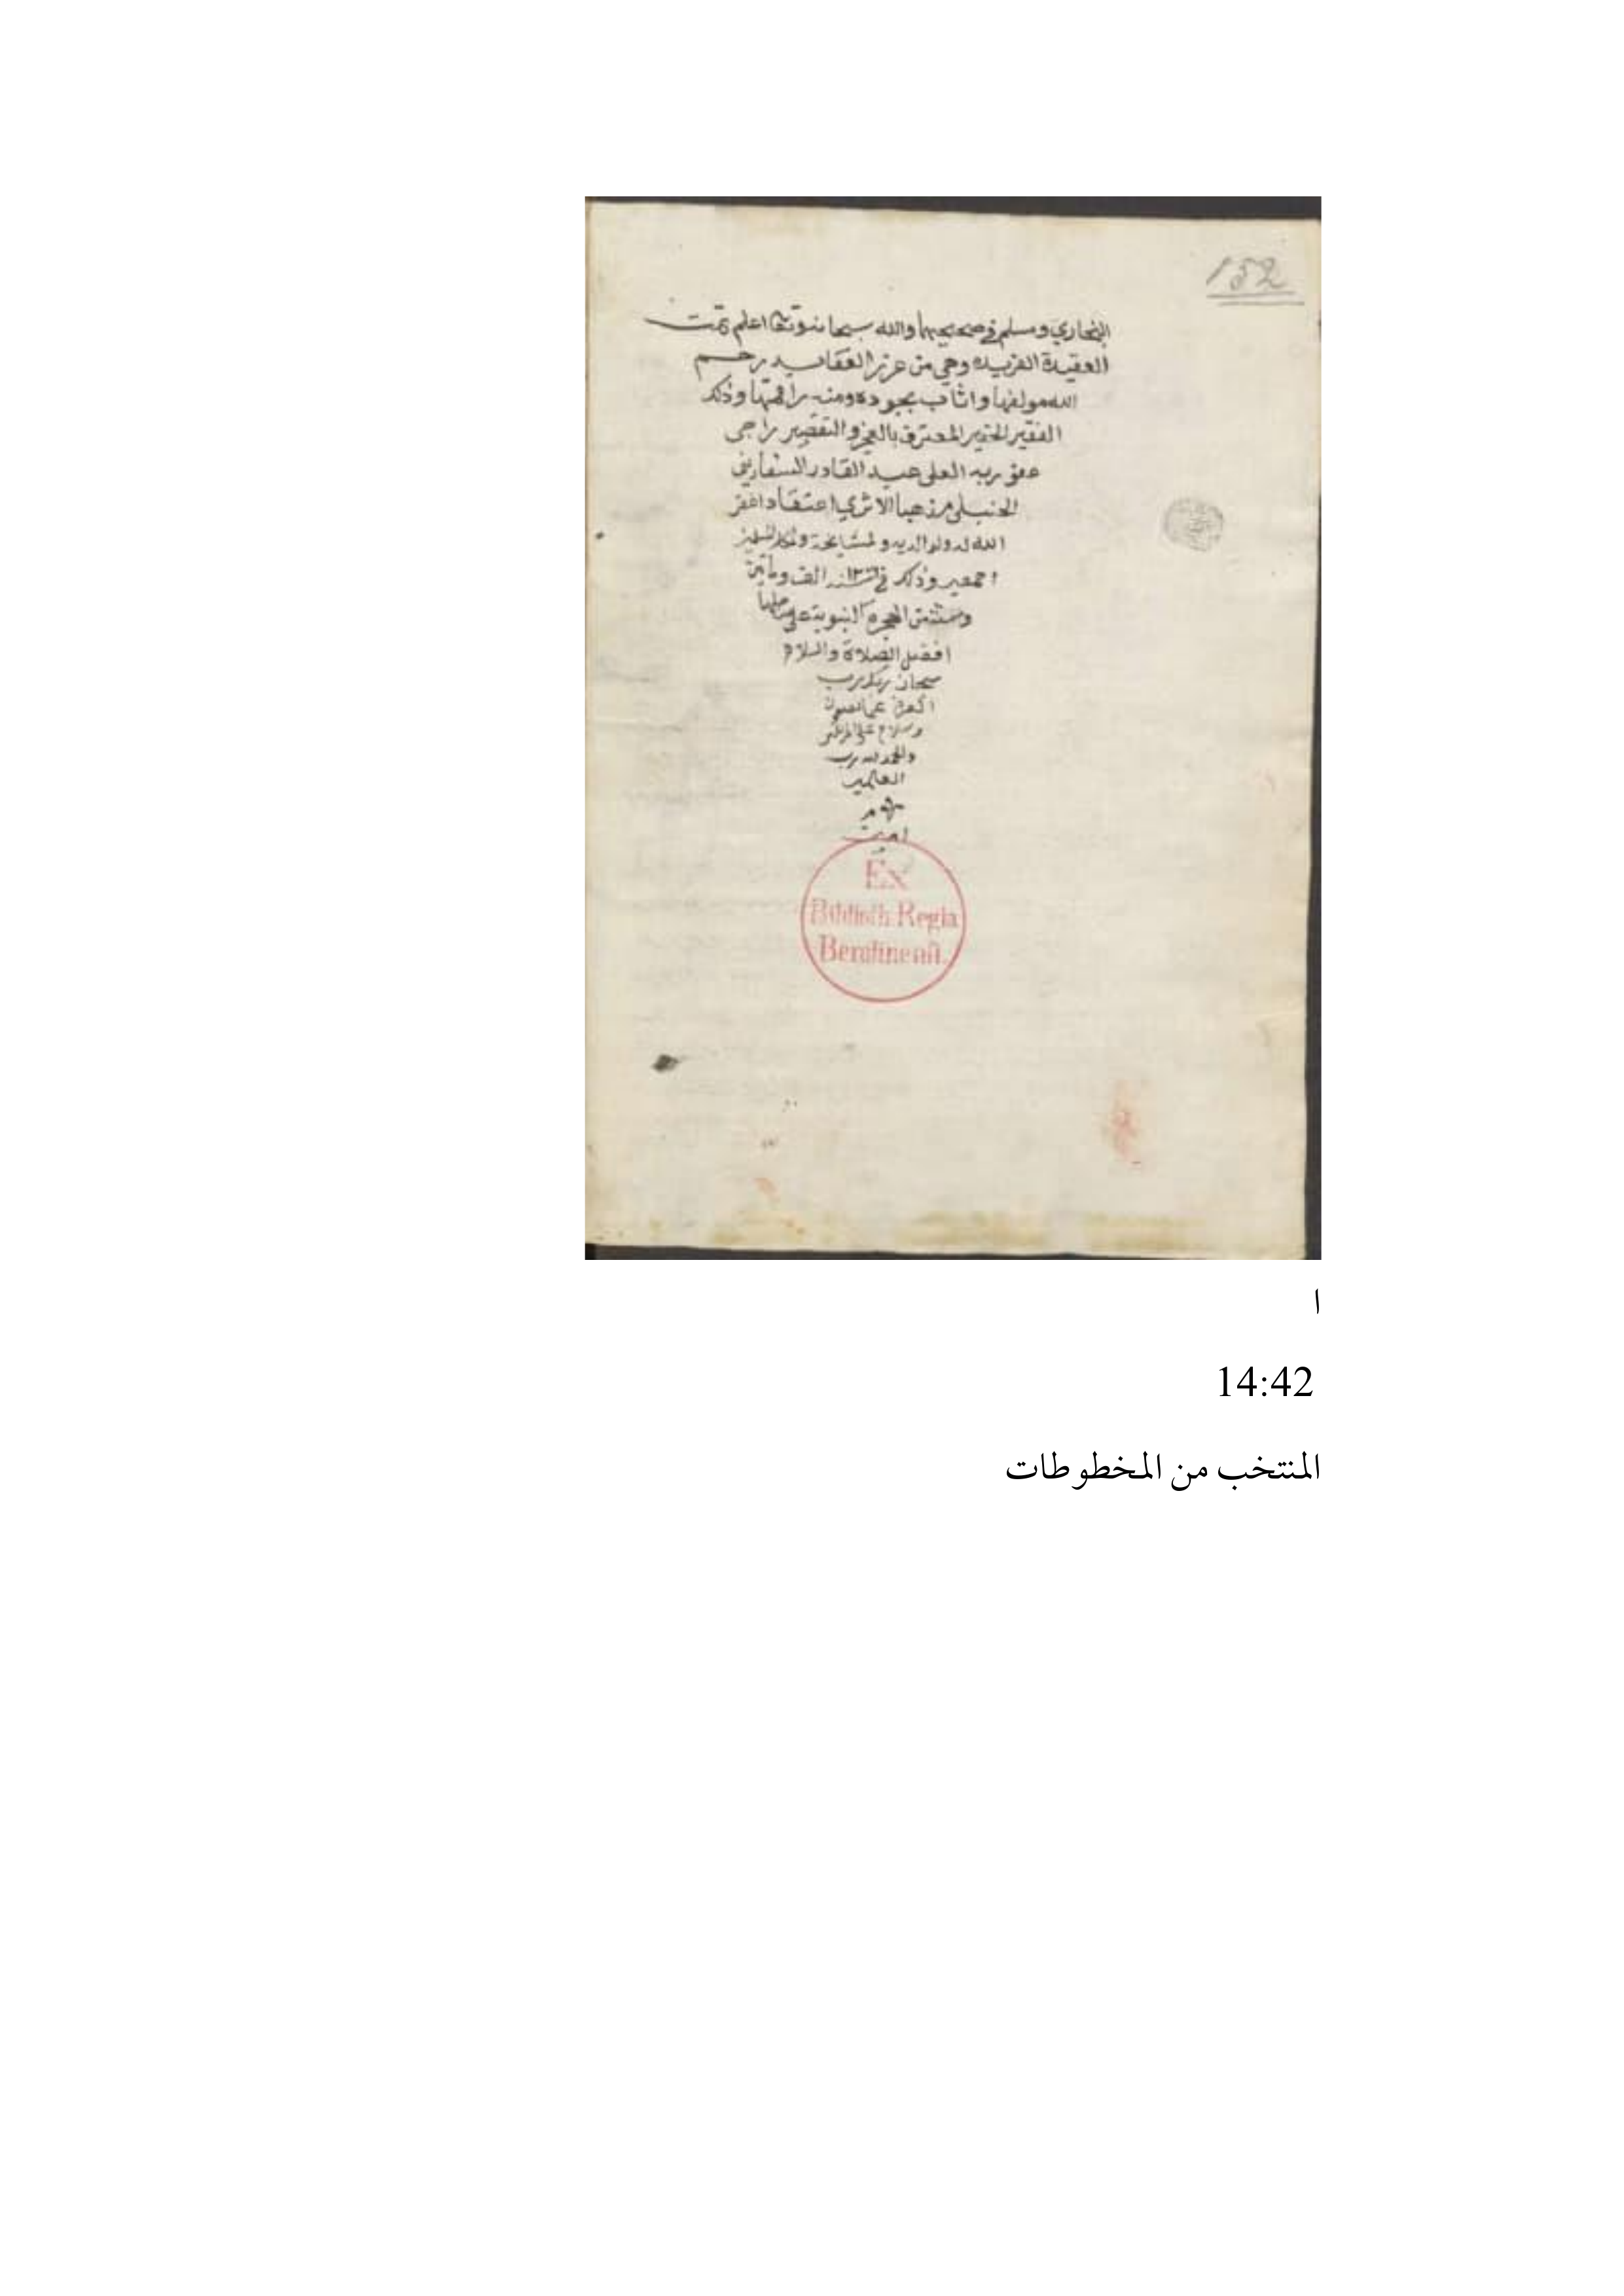 152
البخاري ومسلم في صحيحيهما والله سبحانه وتعالى اعلم تمت
العقيدة الفريده وهي من عزيز العقايد رحم
الله مولفها واثاب بجوده ومنه راقمها وذلك
الفقير الحقير المعترف بالعجز والتقصير راجي
عفو ربه العلي عبد القادر السفاريني
الحنبلي مذهبا الاثري اعتقادا غفر
الله له ولوالديه ولمشايخه ولكل المسلمين
اجمعين وذلك في سنة الف ومأتين
من الهجرة النبوية على
افضل الصلاة والسلام
سبحان ربك رب
العزة عما يصفون
وسلام على المرسلين
والحمد لله رب
العالمين
م
امين
Ex
Biblioth. Regia
Berolinensi.
ا
14:42
المنتخب من المخطوطات